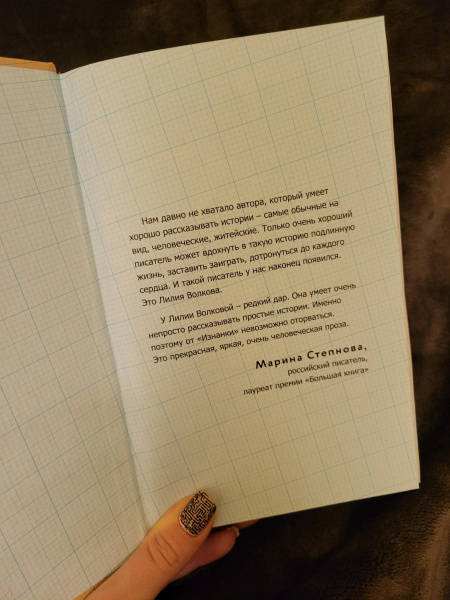 Нам давно не хватало автора, который умеет
хорошо рассказывать истории – самые обычные на
вид, человеческие, житейские. Только очень хороший
писатель может вдохнуть в такую историю подлинную
жизнь, заставить заиграть, дотронуться до каждого
сердца. И такой писатель у нас наконец появился.
Это Лилия Волкова.
У Лилии Волковой – редкий дар. Она умеет очень
непросто рассказывать простые истории. Именно
поэтому от «Изнанки» невозможно оторваться.
Это прекрасная, яркая, очень человеческая проза.
Марина Степнова,
российский писатель,
лауреат премии «Большая книга»